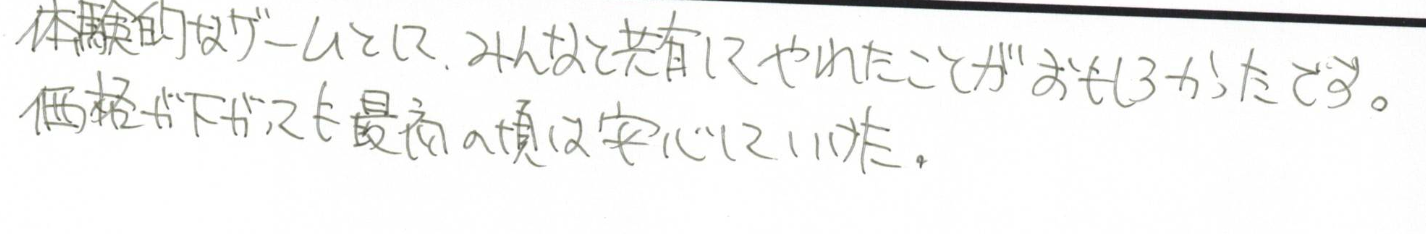 体験的なゲームとして、みんなと共有してやれたことがおもしろかったです。
価格が下がっても最高の頃は安心していけた。